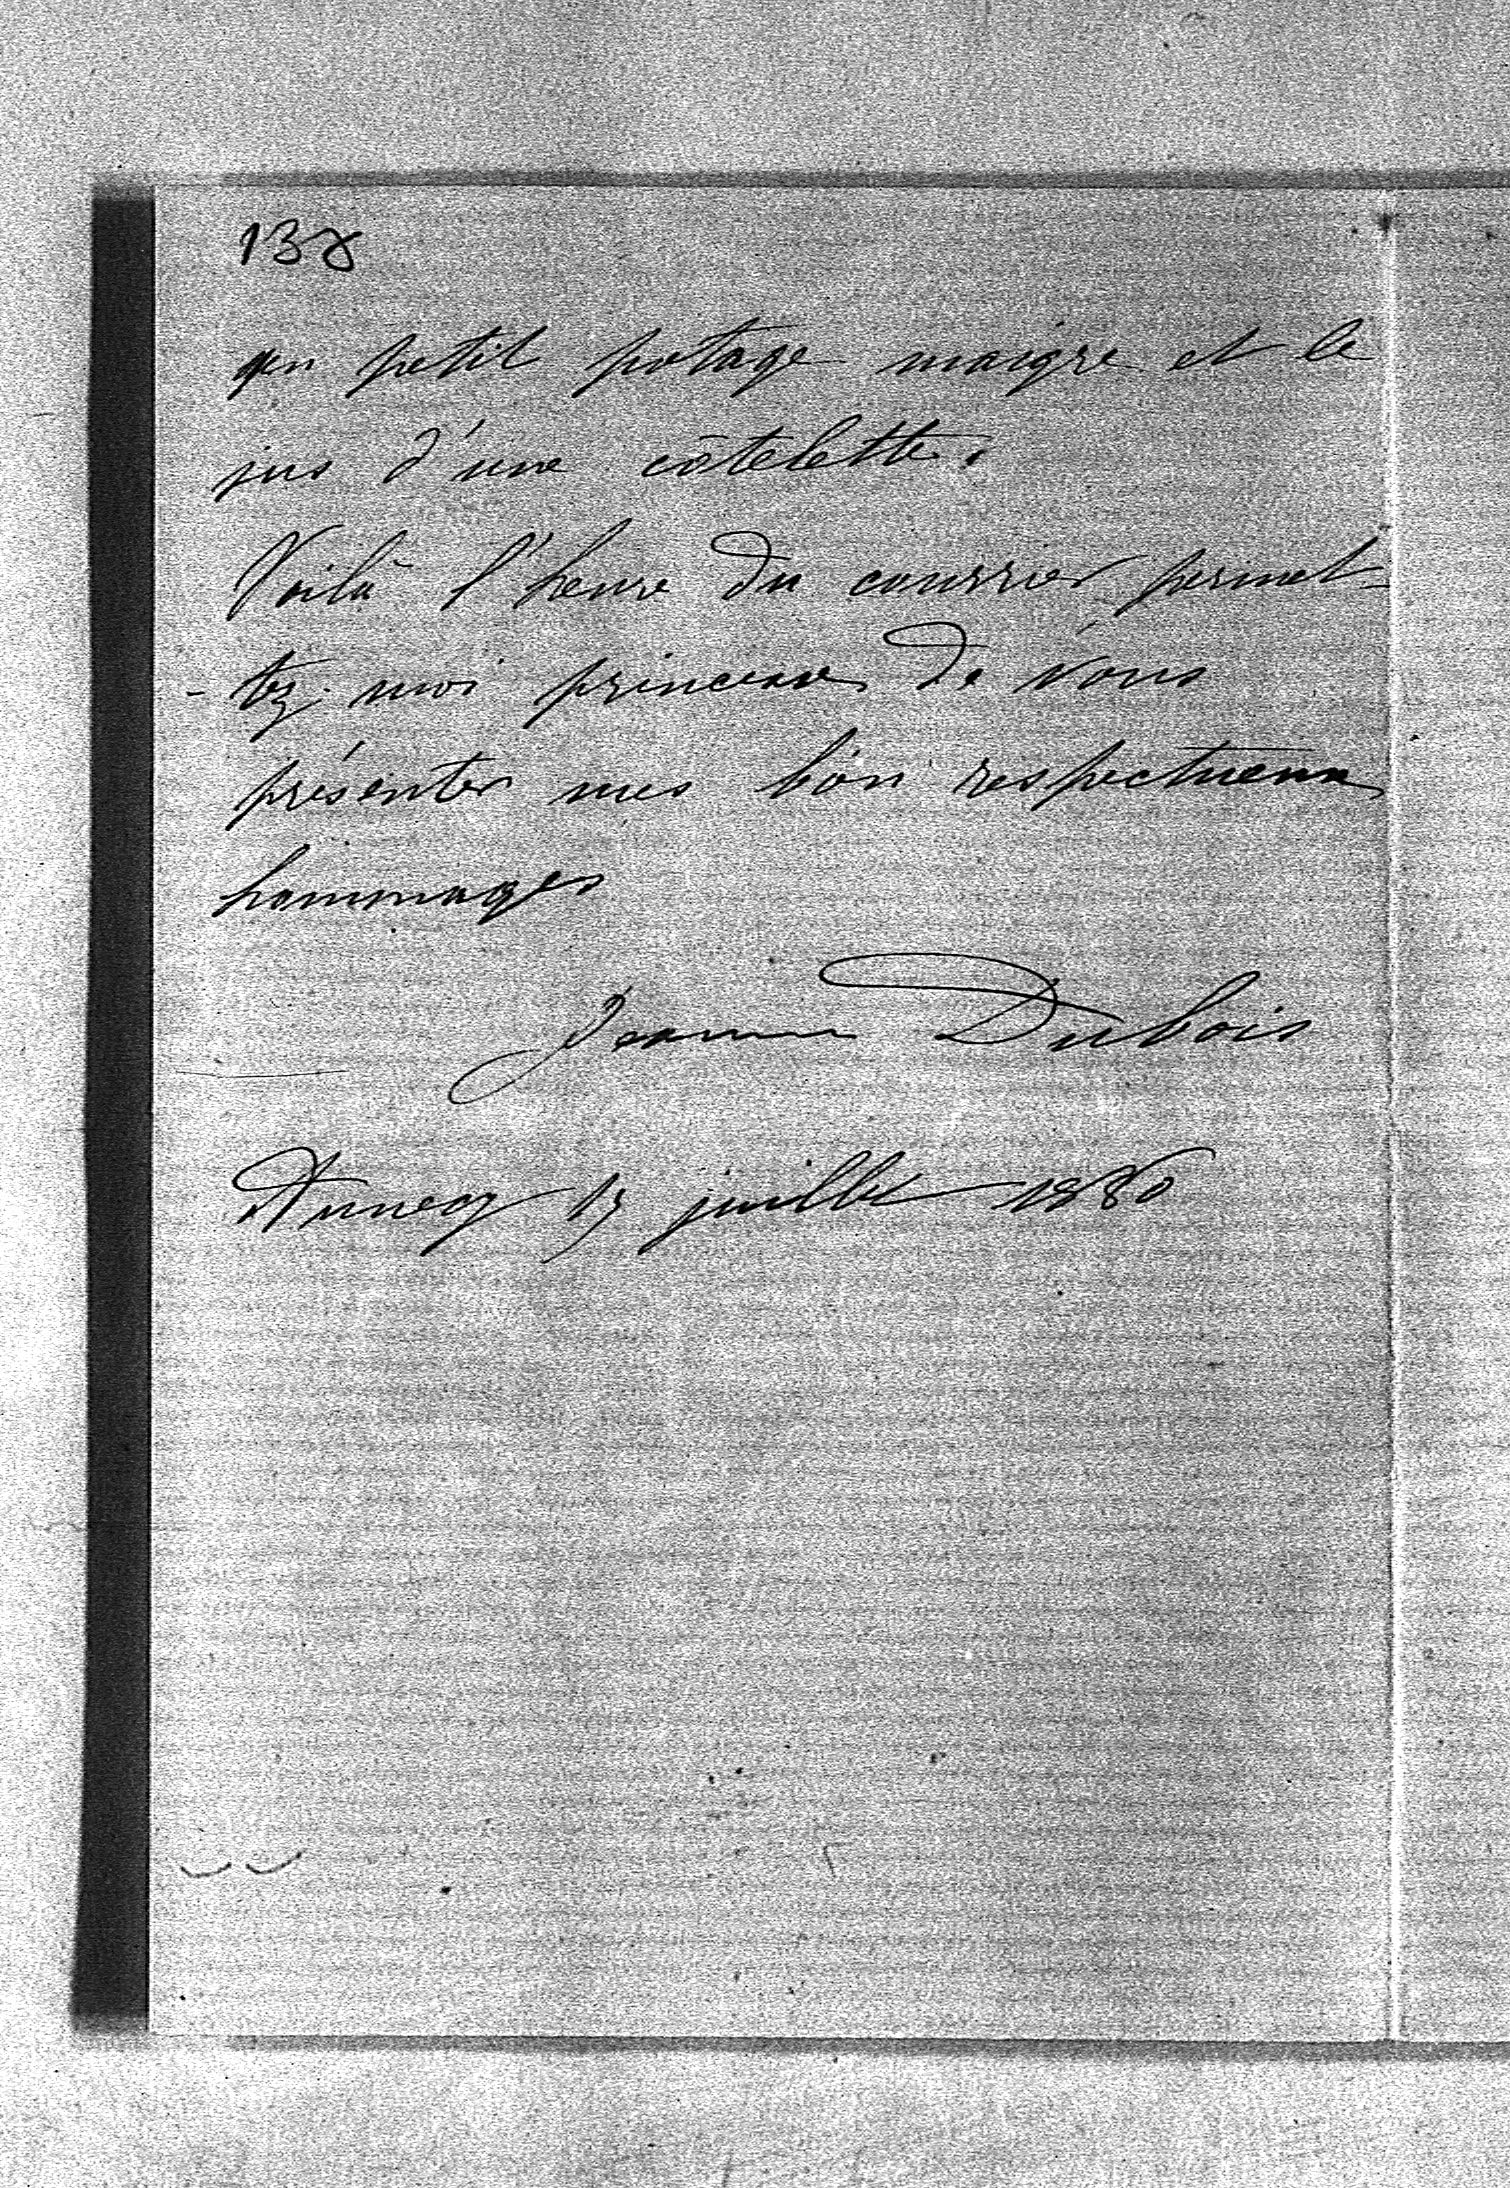 138
un petit potage maigre et le
jus d'une côtelette.
Voilà l'heure du courrier permet-
-tez-moi princesse de vous
présenter mes bien respectueux
hommages
Jeanne Dubois
Annecy 15 juillet 1880